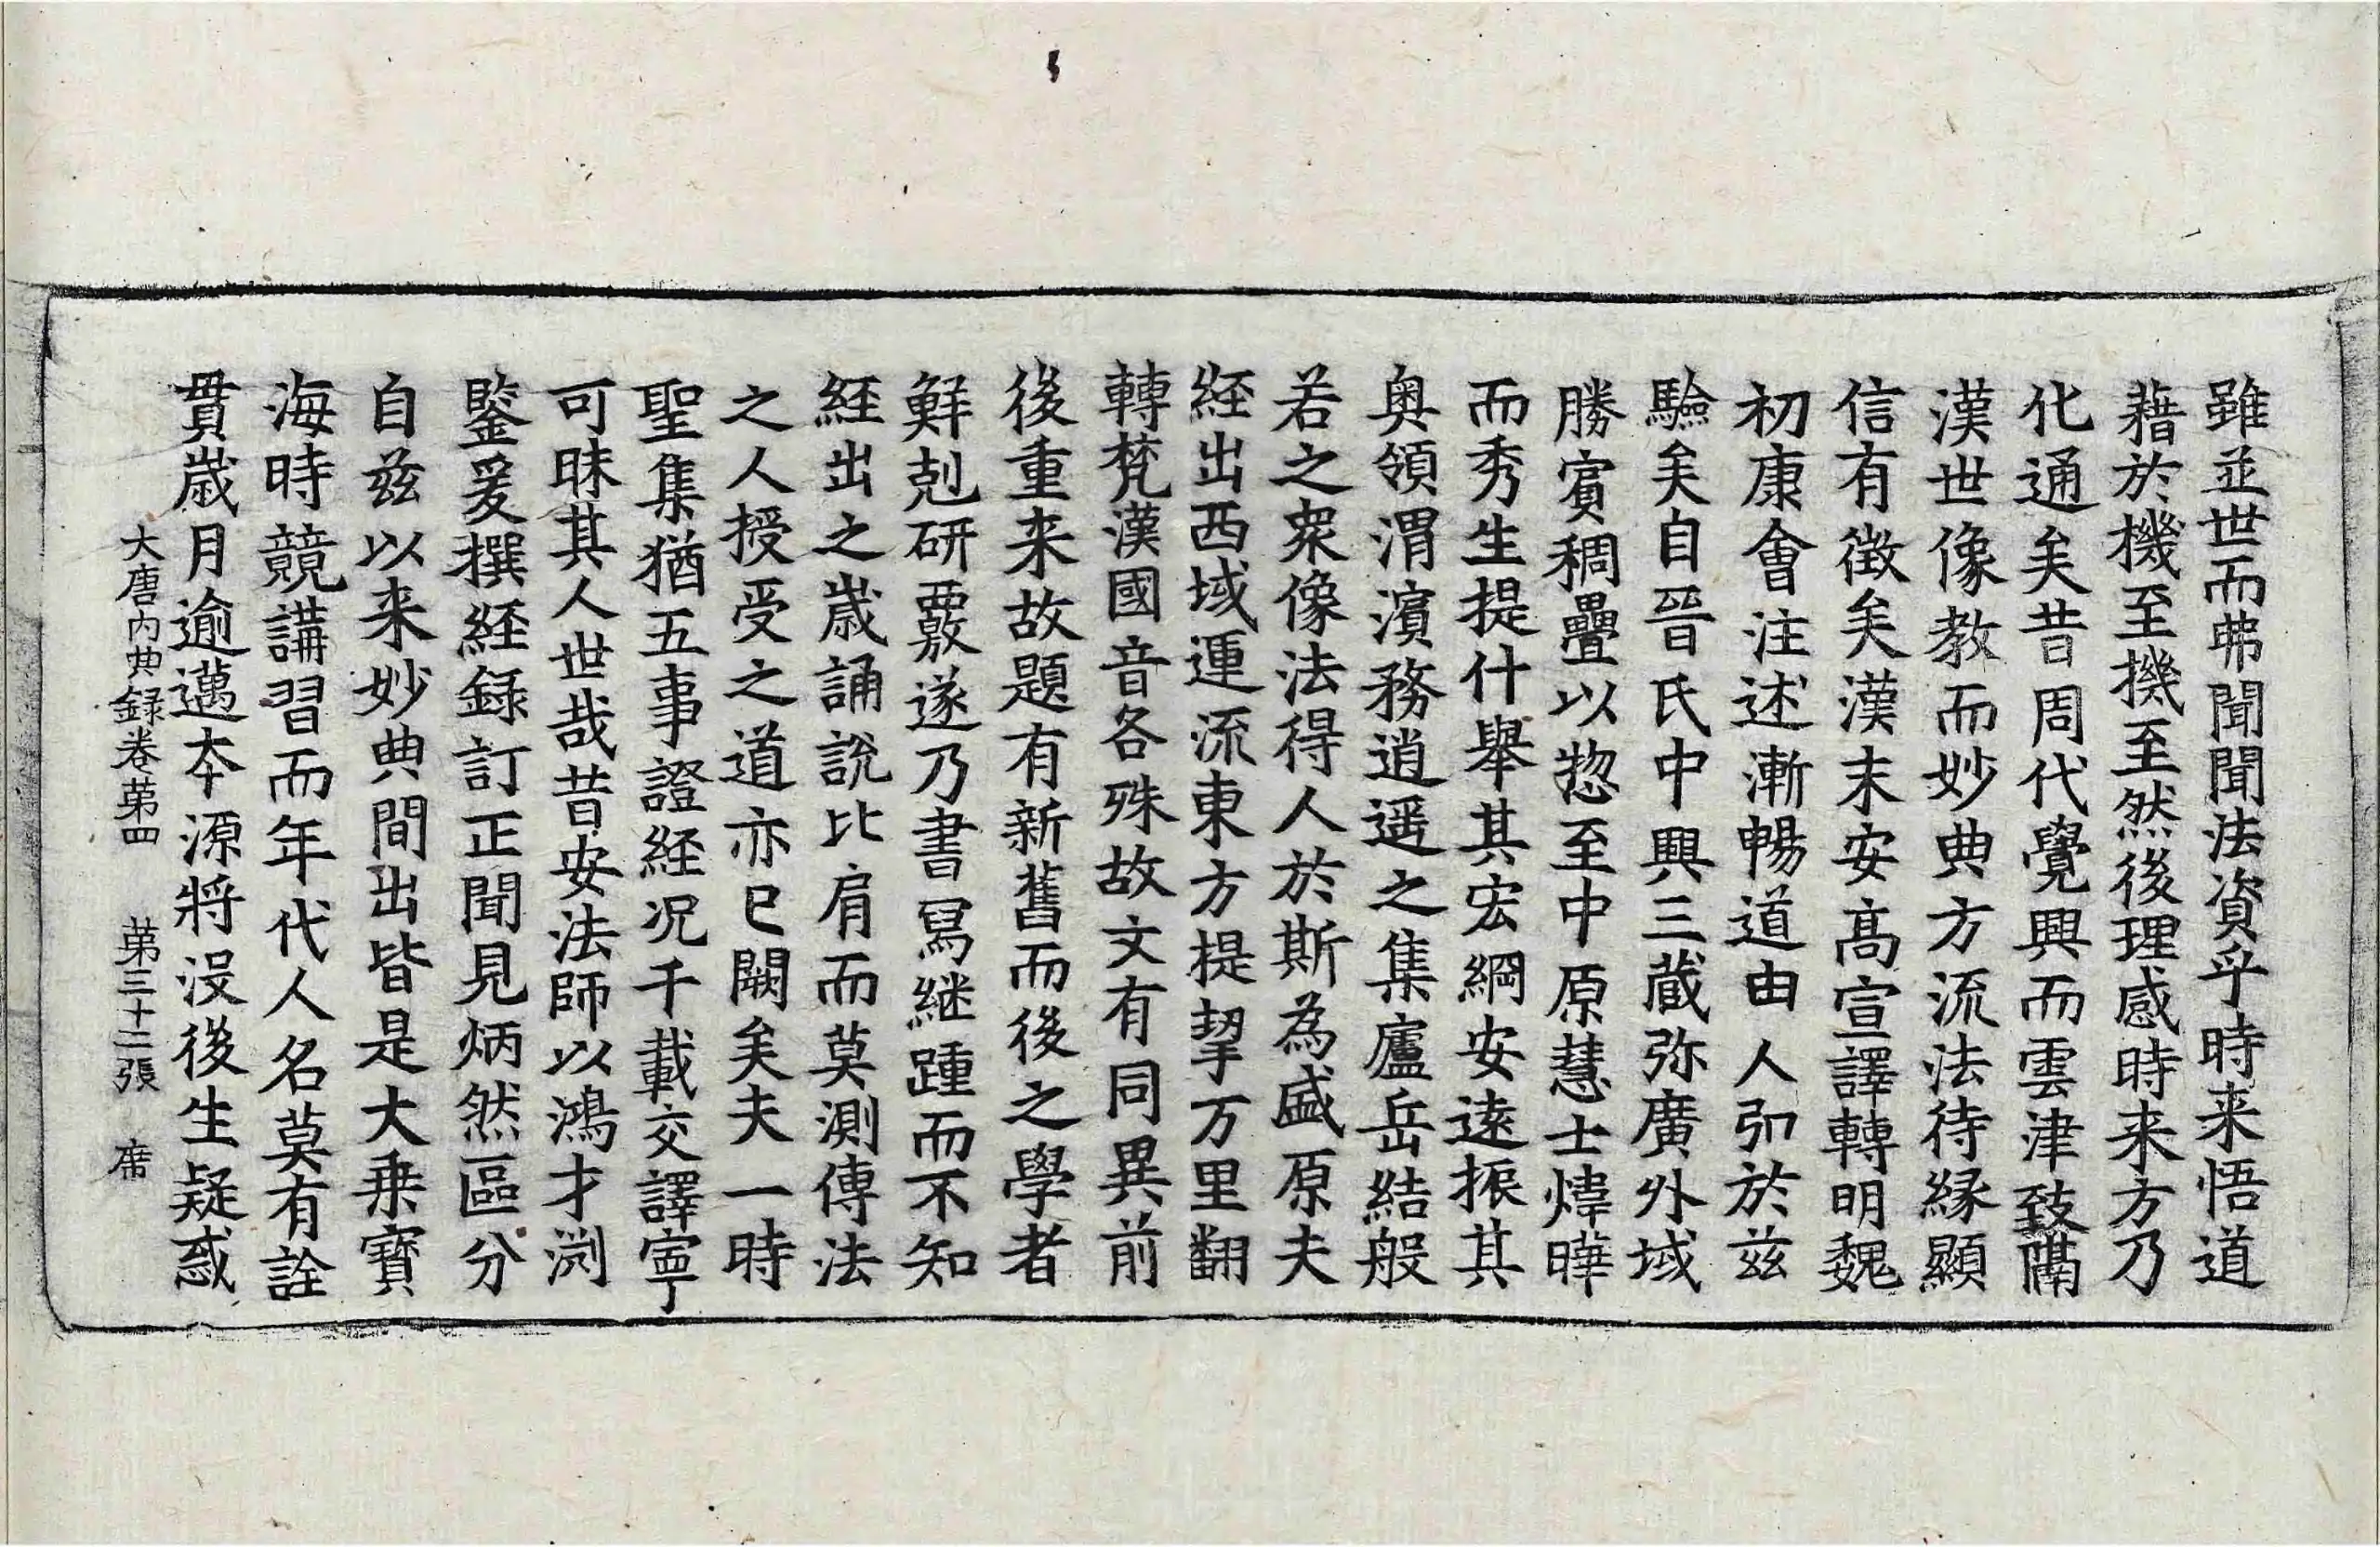 雖並世而弗聞聞法資乎時来悟道
藉於機至機至然後理感時来方乃
化通矣昔周代覺興而雲津致隔
漢世像教而妙典方流法待縁顯
信有徴矣漢末安髙宣譯轉明魏
初康會注述漸暢道由人弘於兹
驗矣自晉氏中興三蔵弥廣外域
勝賔稠疊以惣至中原慧士煒曄
而秀生提什舉其宏綱安遠振其
奥領渭濱務逍遥之集廬岳結般
若之衆像法得人於斯為盛原夫
経出西域運流東方提挈万里翻
轉梵漢國音各殊故文有同異前
後重来故題有新舊而後之學者
鮮剋研覈遂乃書冩継踵而不知
経出之歳誦説比肩而莫測傳法
之人授受之道亦已闕矣夫一時
聖集猶五事證経况千載交譯寧
可昧其人世哉昔安法師以鴻才渕
鑒爰撰経録訂正聞見炳然區分
自兹以来妙典間出皆是大乗寳
海時競講習而年代人名莫有詮
貫歳月逾邁本源將没後生疑惑
大唐内典録卷第四 第三十二張 席